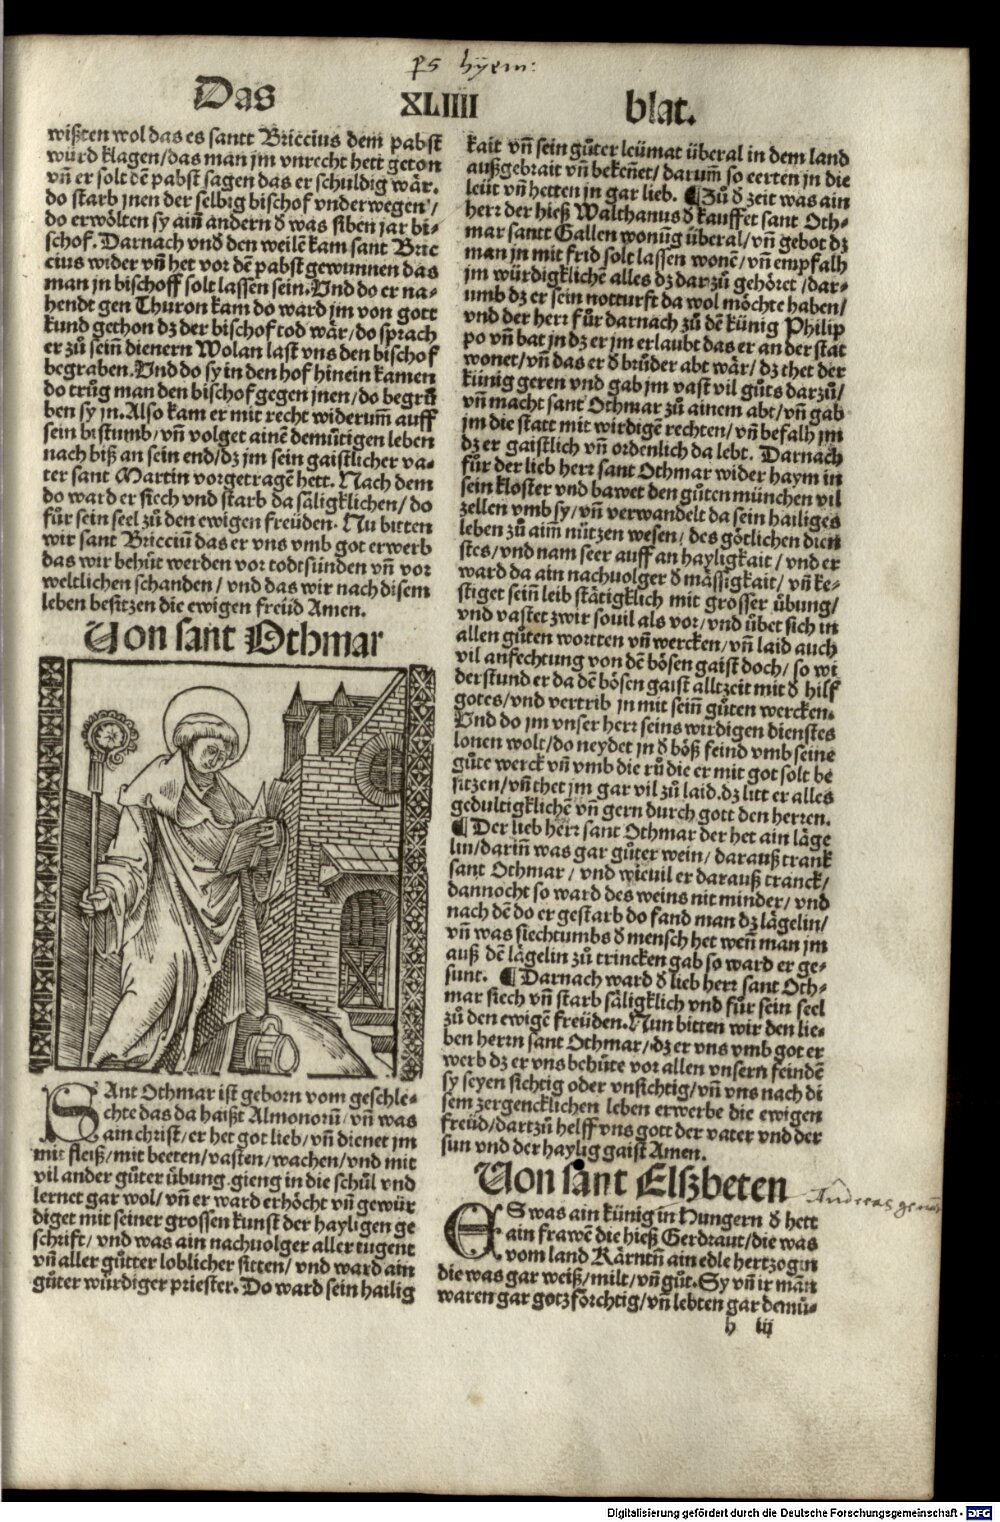 ps hÿem:
Das XLIIII blat.
wißten wol das es santt Briccius dem pabst
würd klagen/das man jm vnrecht hett geton
vñ er solt dẽ pabst sagen das er schuldig wär.
do starb jnen der selbig bischof vnderwegen/
do erwölten sy ainẽ andern ď was siben jar bi-
schof. Darnach vnd den weilẽ kam sant Bric
cius wider vñ het vor dẽ pabst gewunnen das
man jn bischoff solt lassen sein. Vnd do er na-
hendt gen Thuron kam do ward jm von gott
kund gethon dz der bischof tod wär/do sprach
er zů seiñ dienern Wolan last vns den bischof
begraben. Vnd do sy in den hof hinein kamen
do trůg man den bischof gegen jnen/do begrů
ben sy jn. Also kam er mit recht widerum̃ auff
sein bistumb/vñ volget ainẽ demütigen leben
nach biß an sein end/dz jm sein gaistlicher va-
ter sant Martin vorgetragẽ hett. Nach dem
do ward er siech vnd starb da säligklichen/do
fůr sein seel zů den ewigen freüden. Nu bitten
wir sant Bricciũ das er vns vmb got erwerb
das wir behüt werden vor todtsünden vñ vor
weltlichen schanden/vnd das wir nach disem
leben besitzen die ewigen freüd Amen.
Von sant Othmar
SAnt Othmar ist geborn vom geschle-
chte das da haißt Almonorũ/vñ was
ain christ/er het got lieb/vñ dienet jm
mit fleiß/mit beeten/vasten/wachen/vnd mit
vil ander gůter übung. gieng in die schůl vnd
lernet gar wol/vñ er ward erhöcht vñ gewür
diget mit seiner grossen kunst der hayligen ge
schrift/vnd was ain nachuolger aller tugent
vñ aller gůtter loblicher sitten/vnd ward ain
gůter würdiger priester. Do ward sein hailig
kait vñ sein gůter leümat überal in dem land
außgebrait vñ bekeñet/darum̃ so eerten jn die
leüt vñ hetten jn gar lieb. ¶ Zů ď zeit was ain
herr der hieß Walthanus ď kauffet sant Oth-
mar santt Gallen wonũg überal/vñ gebot dz
man jn mit frid solt lassen wonẽ/vñ empfalh
jm würdigklichẽ alles dz darzů gehöret/dar-
umb dz er sein notturft da wol möchte haben/
vnd der herr fůr darnach zů dẽ künig Philip
po vñ bat jn dz er jm erlaubt das er an der stat
wonet/vñ das er ď brůder abt wär/dz thet der
künig geren vnd gab jm vast vil gůts darzů/
vñ macht sant Othmar zů ainem abt/vñ gab
jm die statt mit wirdigẽ rechten/vñ befalh jm
dz er gaistlich vñ ordenlich da lebt. Darnach
fůr der lieb herr sant Othmar wider haym in
sein kloster vnd bawet den gůten münchen vil
zellen vmb sy/vñ verwandelt da sein hailiges
leben zů aim̃ nützen wesen/des götlichen dien
stes/vnd nam seer auff an hayligkait/vnd er
ward da ain nachuolger ď mässigkait/vñ ke-
stiget seiñ leib stätigklich mit grosser übung/
vnd vastet zwir souil als vor/vnd übet sich in
allen gůten wortten vñ wercken/vñ laid auch
vil anfechtung von dẽ bösen gaist doch/so wi
derstund er da dẽ bösen gaist alltzeit mit ď hilf
gotes/vnd vertrib jn mit seiñ gůten wercken.
Vnd do jm vnser herr seins wirdigen dienstes
lonen wolt/do neydet jn ď böß feind vmb seine
gůte werck vñ vmb die rů die er mit got solt be
sitzen/vñ thet jm gar vil zů laid. dz litt er alles
gedultigklichẽ vñ gern durch gott den herren.
¶ Der lieb herr sant Othmar der het ain läge
lin/dariñ was gar gůter wein/darauß tranck
sant Othmar/vnd wieuil er darauß tranck/
dannocht so ward des weins nit minder/vnd
nach dẽ do er gestarb do fand man dz lägelin/
vñ was siechtumbs ď mensch het weñ man jm
auß dẽ lägelin zů trincken gab so ward er ge-
sunt. ¶ Darnach ward ď lieb herr sant Oth-
mar siech vñ starb säligklich vnd fůr sein seel
zů den ewigẽ freüden. Nun bitten wir den lie-
ben herrn sant Othmar/dz er vns vmb got er
werb dz er vns behüte vor allen vnsern feindẽ
sy seyen sichtig oder vnsichtig/vñ vns nach di
sem zergencklichen leben erwerbe die ewigen
freüd/dartzů helff vns gott der vater vnd der
sun vnd der haylig gaist Amen.
Von sant Elßbeten
Andreas
ES was ain künig in Hungern ď hett
ain frawẽ die hieß Gerdraut/die was
vom land Kärntñ ain edle hertzogin
die was gar weiß/milt/vñ gůt. Sy vñ ir mañ
waren gar gotzförchtig/vñ lebten gar demü-
h iij
Digitalisierung gefördert durch die Deutsche Forschungsgemeinschaft - DFG